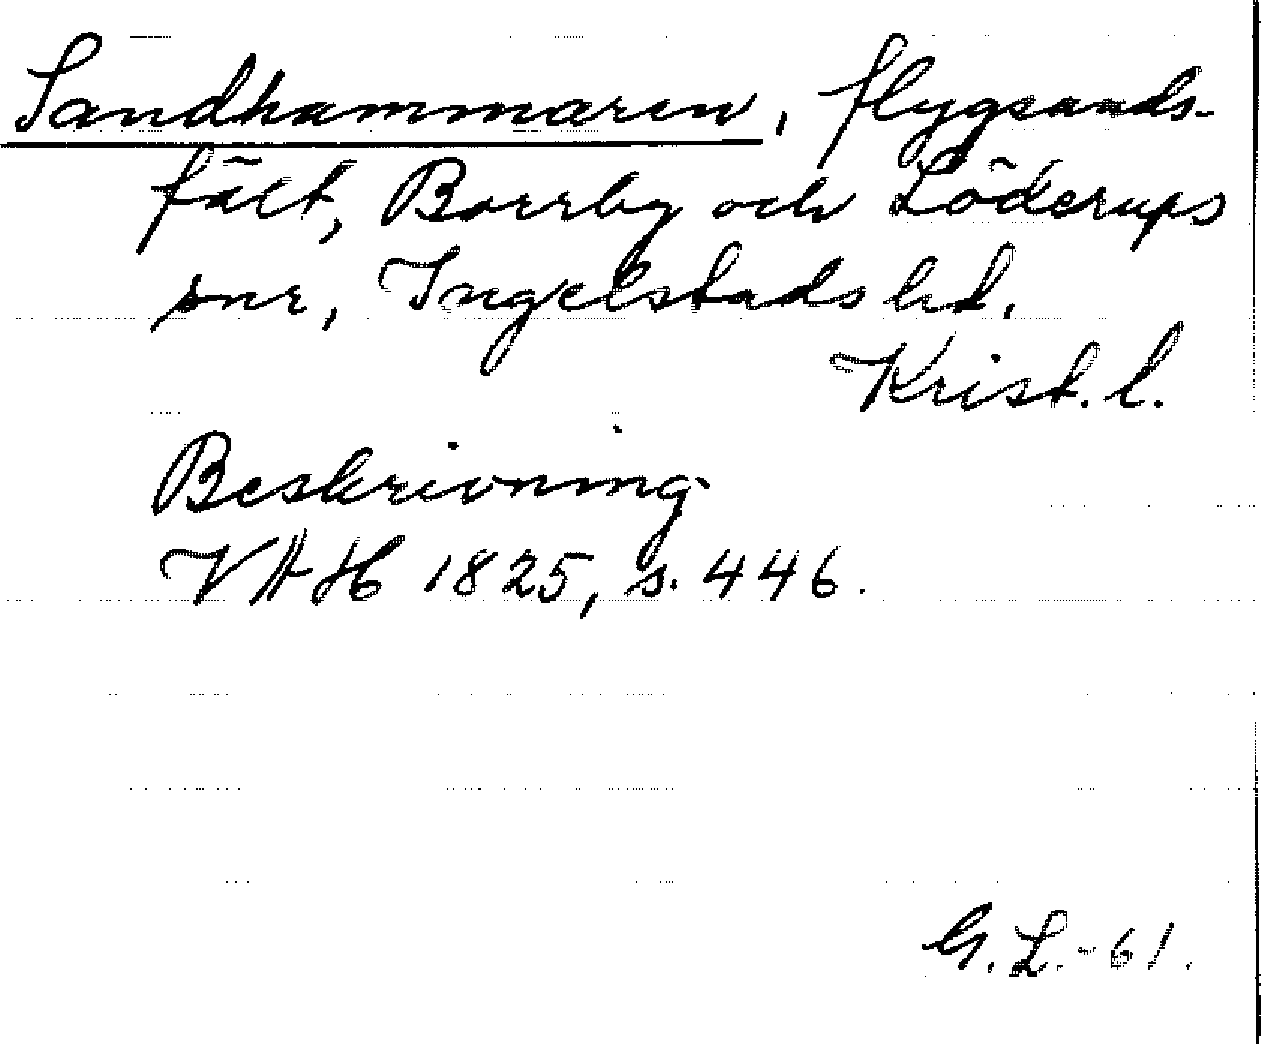 Sandhammaren, flygsands-
fält, Borrby och Löderups
snr, Ingelstads hd.
Krist. l.
Beskrivning
VAH 1825, s. 446.
G. L. -61.